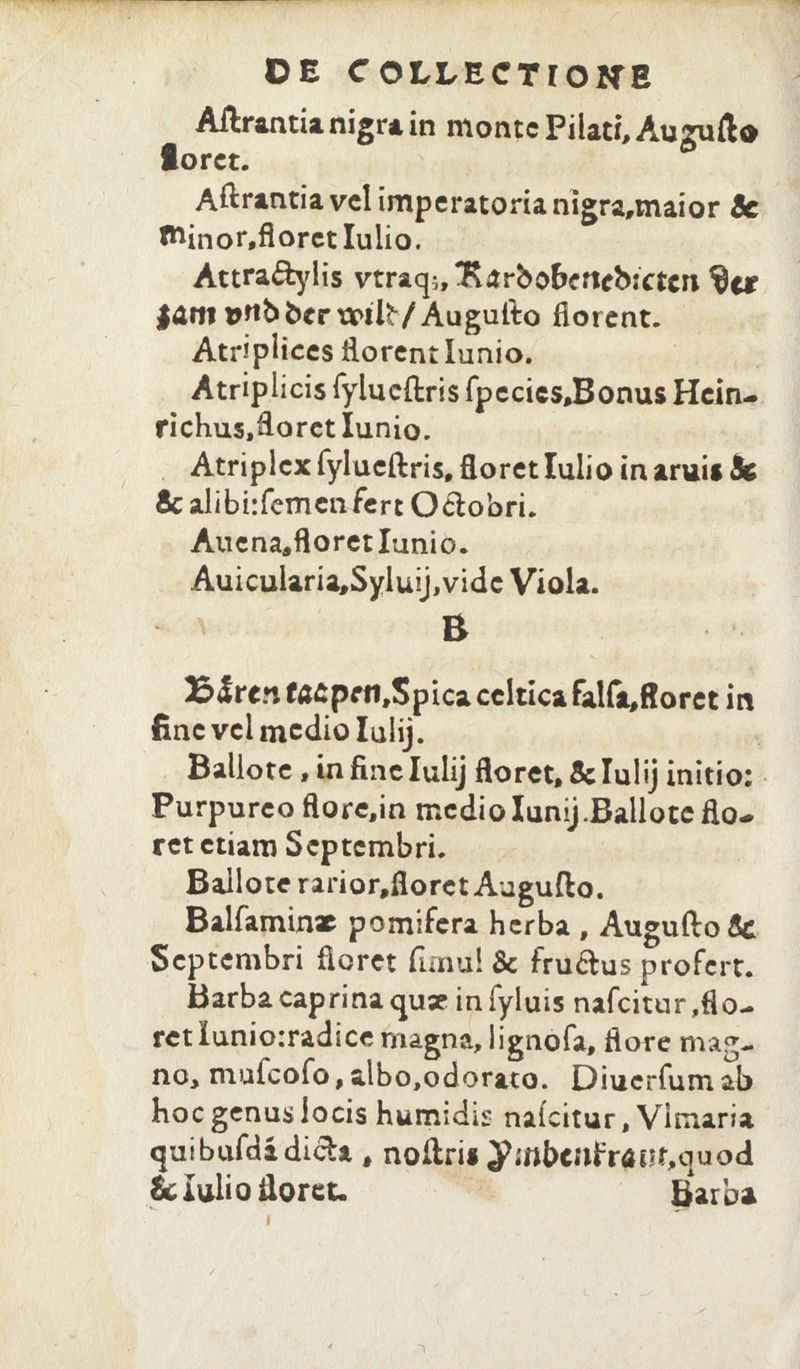 DE COLLECTIONE
Aſtrantia nigra in monte Pilati, Auguſto
floret.
Aſtrantia vel imperatoria nigra, maior &
minor, floret Iulio.
Attractylis vtraq;, Kardobenedicten der
zam vnd der wild/ Auguſto florent.
Atriplices florent Iunio.
Atriplicis ſylueſtris ſpecies, Bonus Hein-
richus, floret Iunio.
Atriplex ſylueſtris, floret Iulio in aruis &
& alibi: ſemen fert Octobri.
Auena, floret Iunio.
Auicularia, Syluij, vide Viola.
B
Bären taapen, Spica celtica falſa, floret in
fine vel medio Iulij.
Ballote, in fine Iulij floret, & Iulij initio:
Purpureo flore, in medio Iunij. Ballote flo-
ret etiam Septembri.
Ballote rarior, floret Auguſto.
Balſaminæ pomifera herba, Auguſto &
Septembri floret ſimul & fructus profert.
Barba caprina quæ in ſyluis naſcitur, flo-
ret Iunio: radice magna, lignoſa, flore mag-
no, muſcoſo, albo, odorato. Diuerſum ab
hoc genus locis humidis naſcitur, Vlmaria
quibuſdã dicta, noſtris Ymbenkraut, quod
& Iulio floret.
Barba